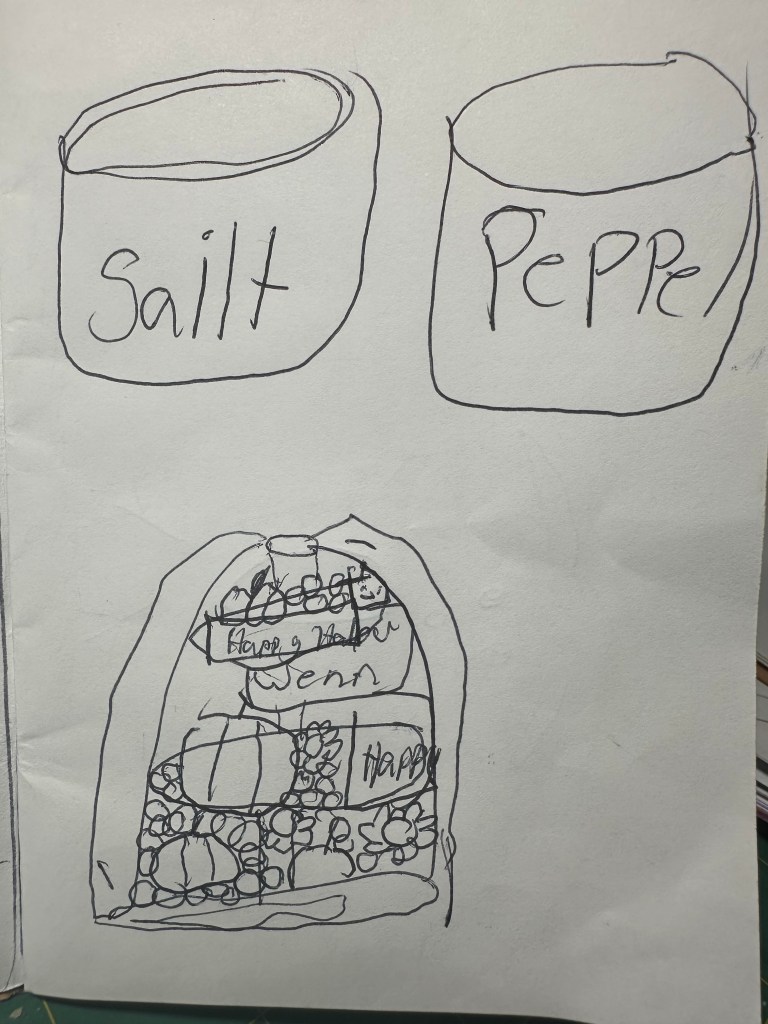 Sailt
Peppe/
Happy Hallow
Wenn
Happy